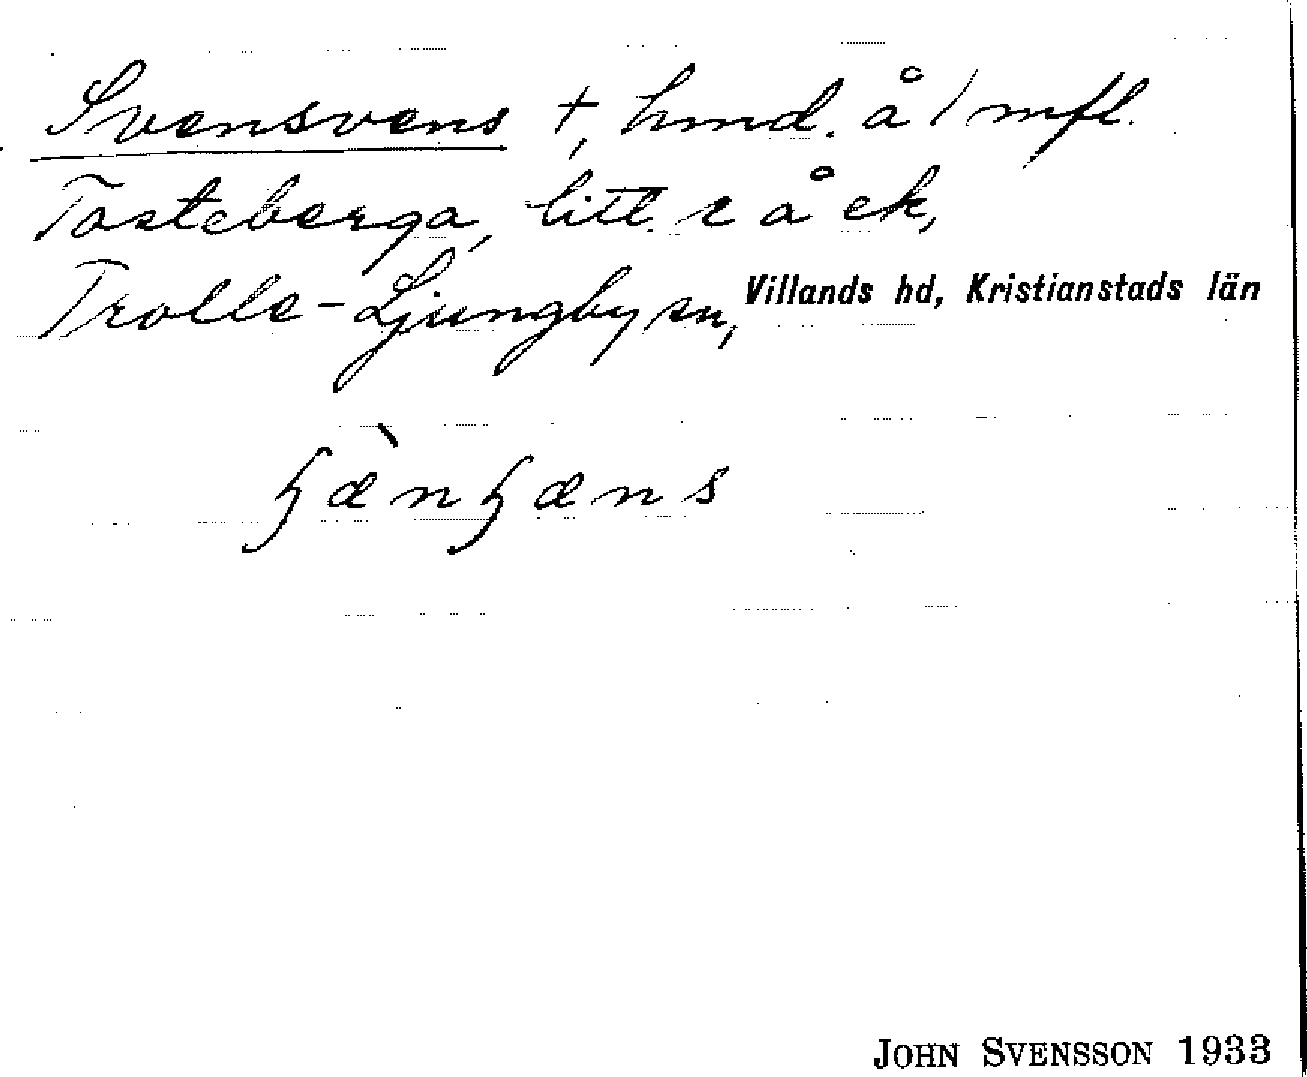 Svensvens †, hmd. å 1 mfl.
Tosteberga, litt. c å ek,
Trolle-Ljungby sn, Villands hd, Kristianstads län
ɧæ̀nɧæns
JOHN SVENSSON 1933